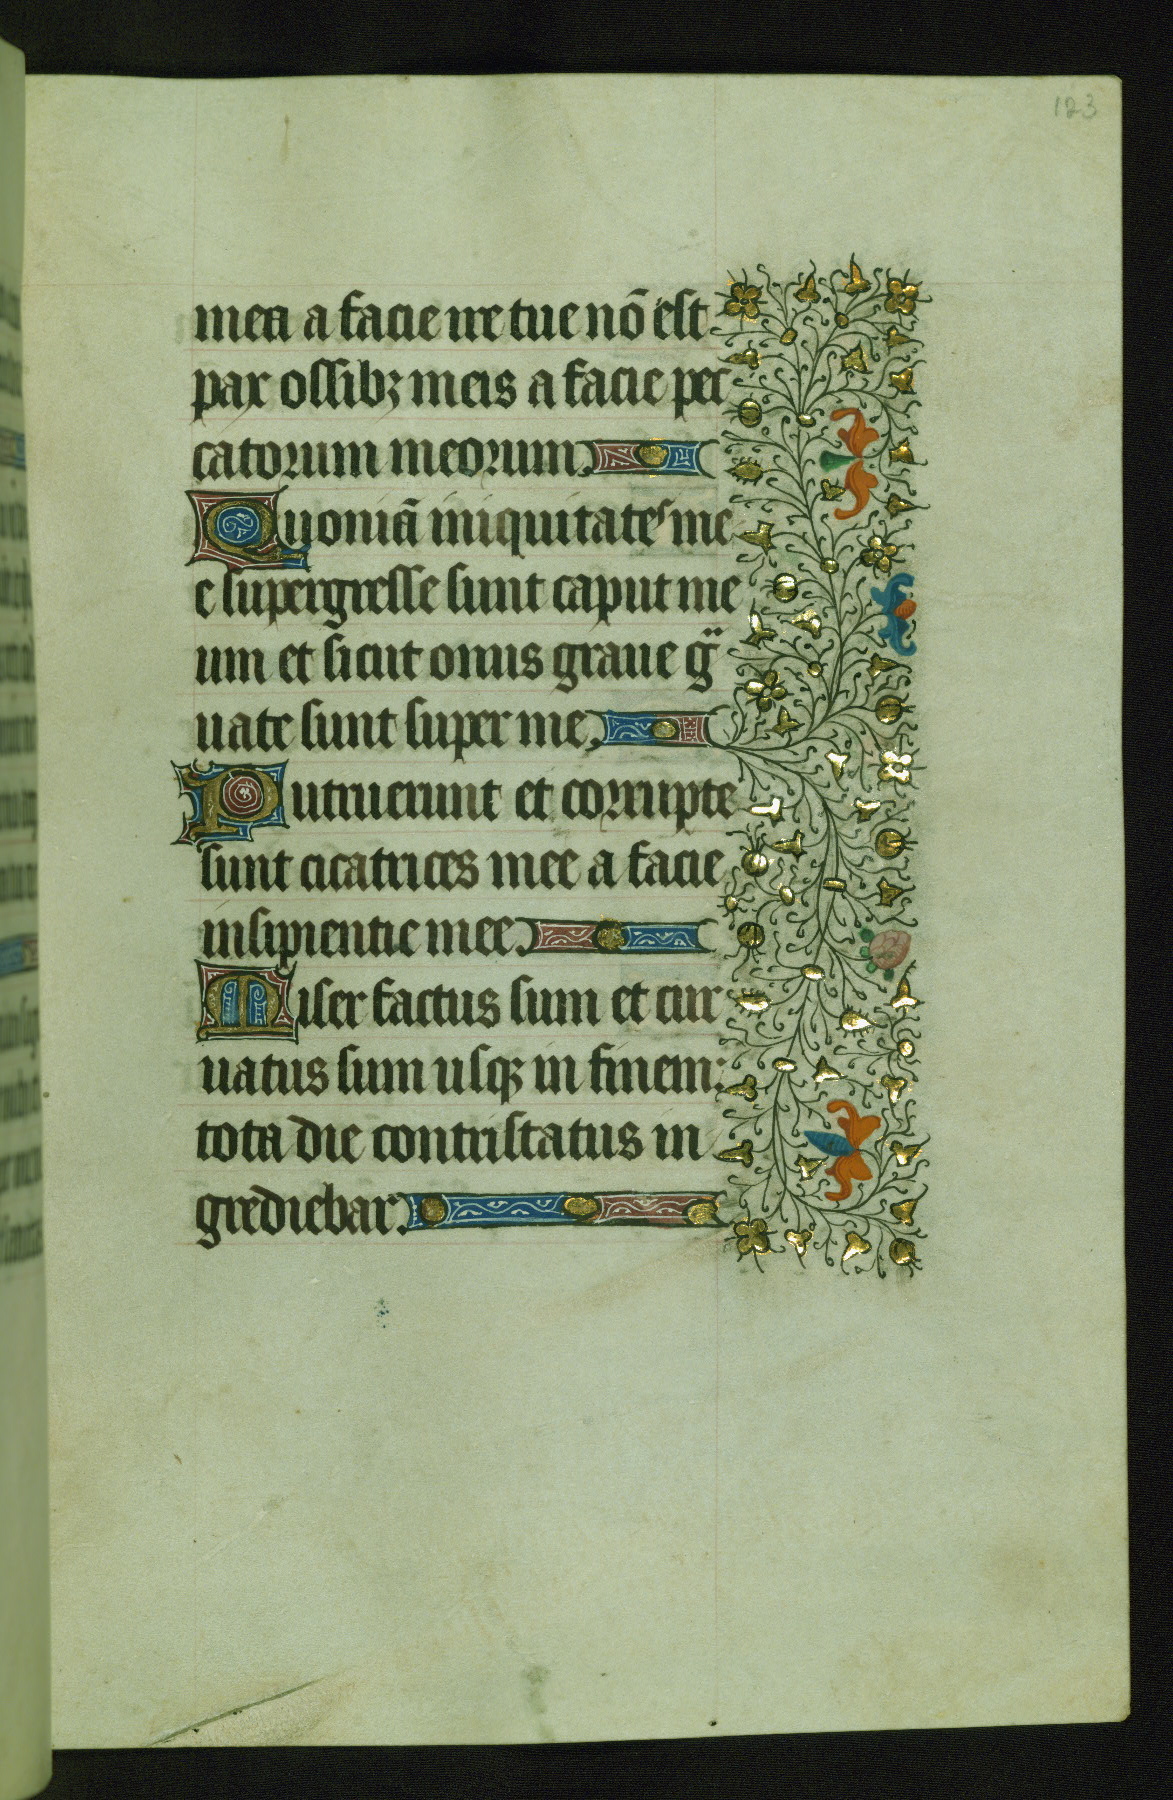 123
mea a facie ire tue nō est
pax ossibꝫ meis a facie pec
catorum meorum.
Quoniā iniquitates me
e supergresse sunt caput me
um et sicut onus graue gͣ
uate sunt super me.
Putruerunt et corrupte
sunt cicatrices mee a facie
insipientie mee.
Miser factus sum et cur
uatus sum usqꝫ in finem:
tota die contristatus in
grediebar.